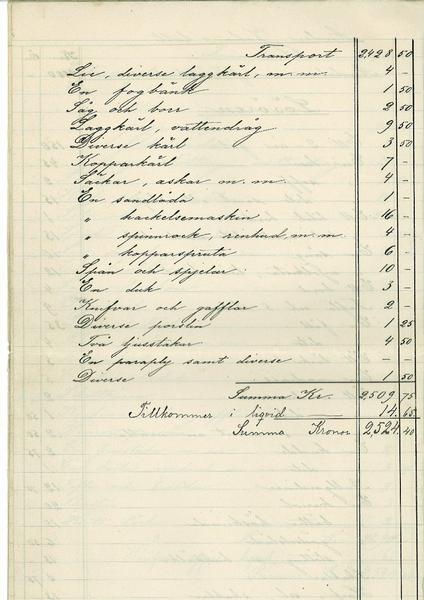 Transport 2,428 50
Lie, diverse laggkärl, m.m. 4 –
En fogbänk 1 50
Såg och borr 2 50
Laggkärl, vattendräg 9 50
Diverse kärl 3 50
Kopparkärl 7 –
Säckar, askar m.m. 4 –
En sandlåda 1 –
" hackelsemaskin 16 –
" spinnrock, renhud, m.m. 4 –
" kopparspruta 6 –
Spån och spjelar 10 –
En duk 3 –
Knifvar och gafflar 2 –
Diverse porslin 1 25
Två ljusstakar 4 50
En paraply samt diverse – –
Diverse 1 50
Summa Kr. 2,509 75
Tillkommer i liqvid 14. 65
Summa Kronor 2,524. 40